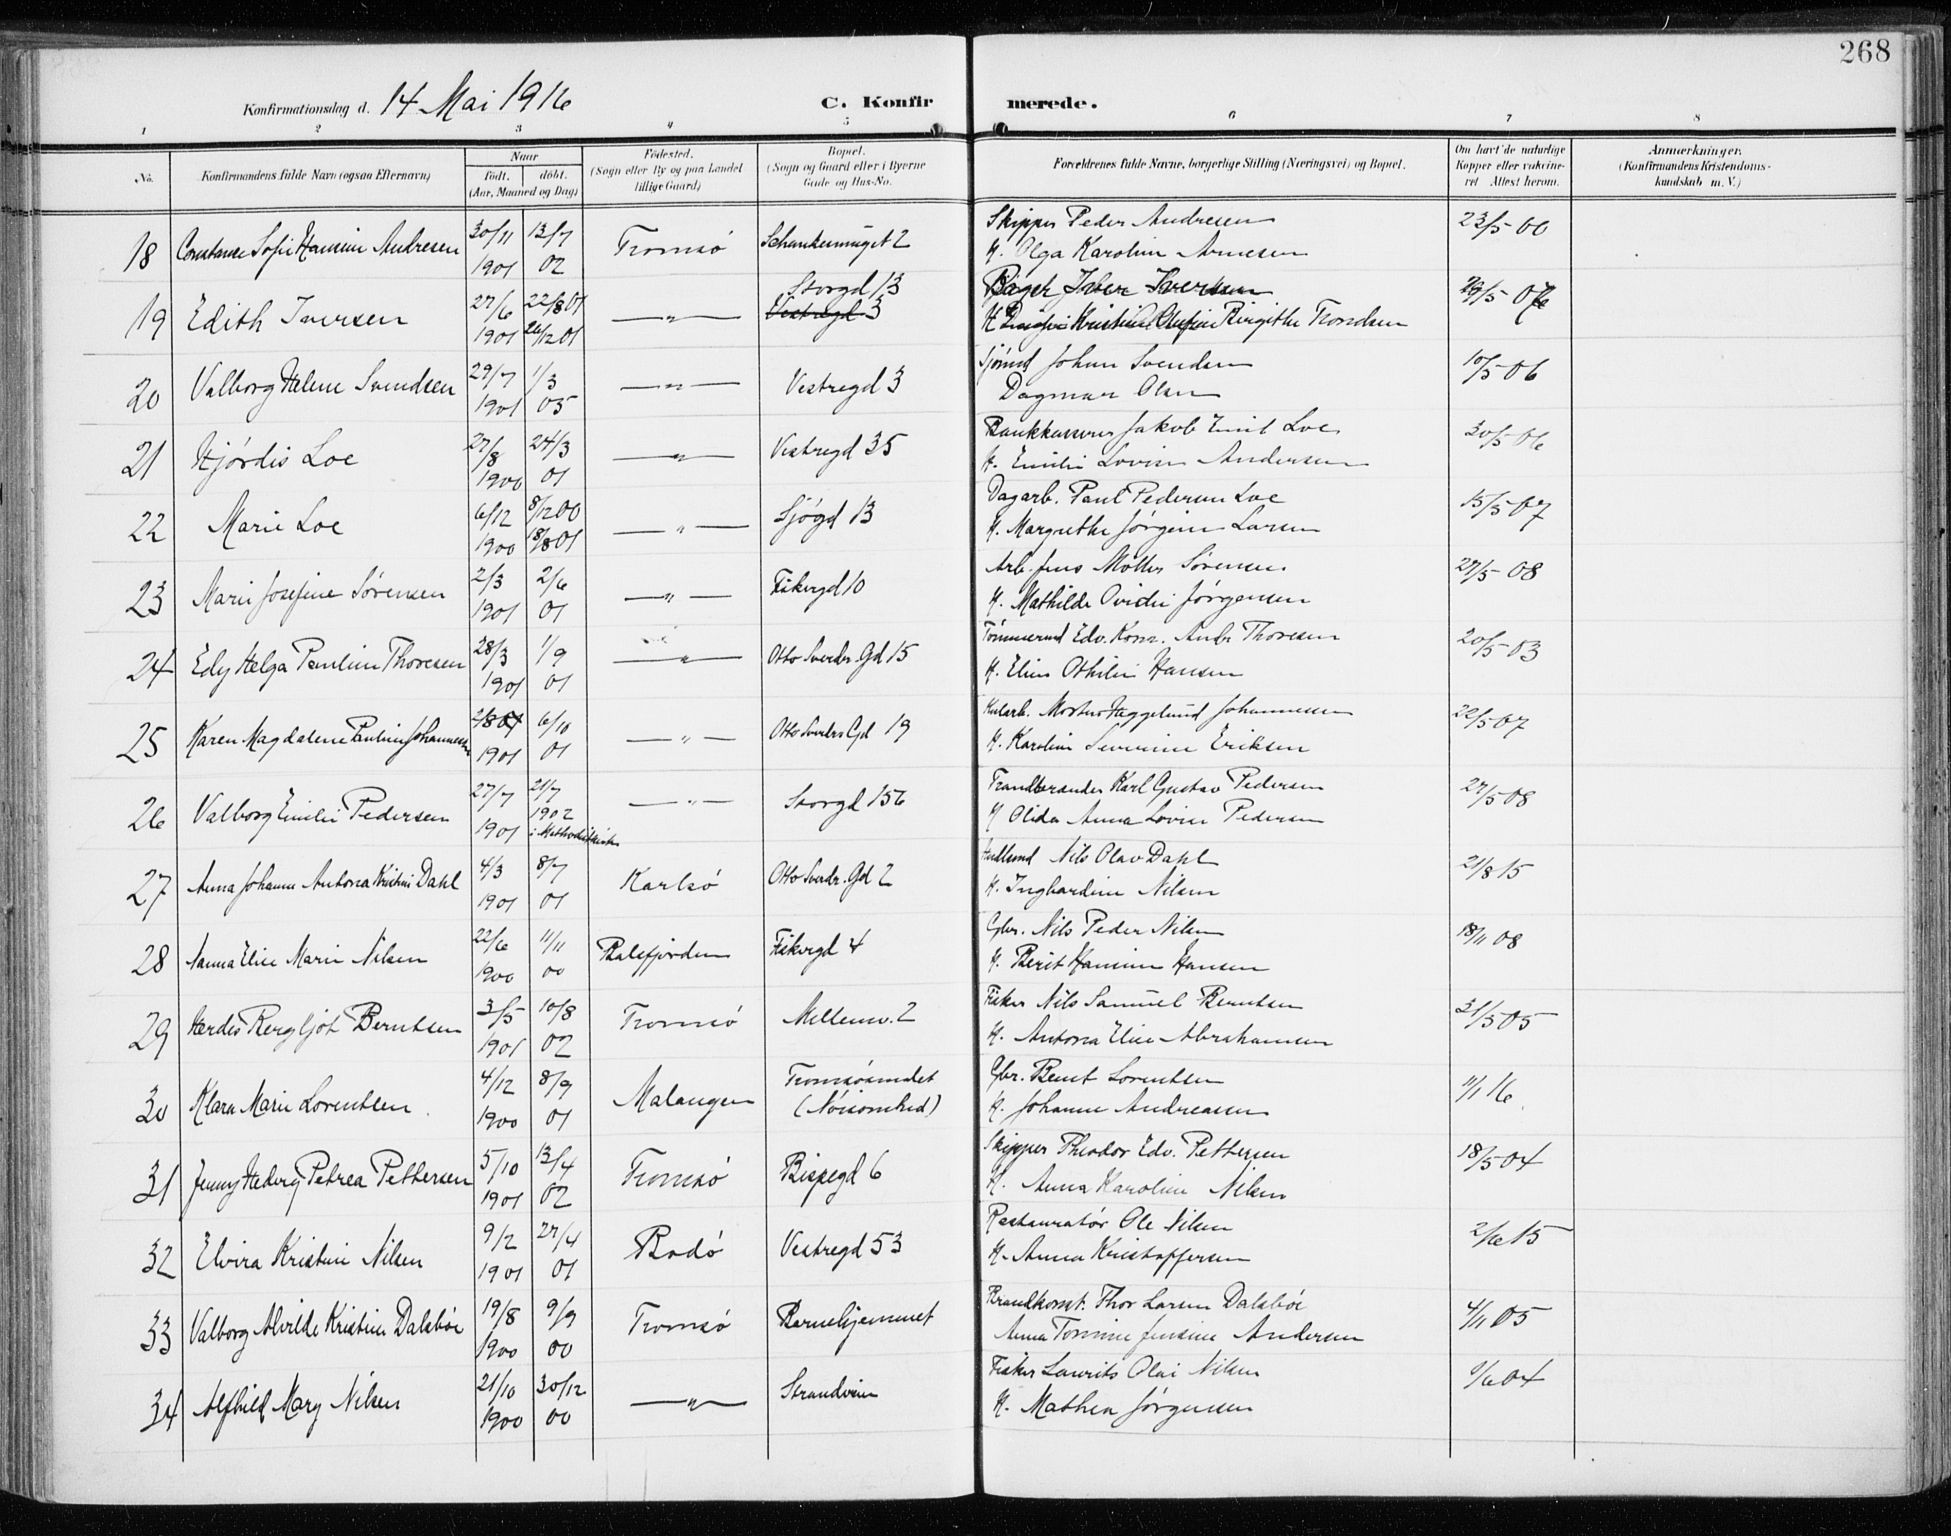 268
Konfirmationsdag d. 14 Mai 1916
C. Konfirmerede.
1 2 3 4 5 6 7 8
No. Konfirmandens fulde Navn (ogsaa Efternavn) Naar Födt. döbt. (Aar, Maaned og Dag) Födested. (Sogn eller By og paa Landet tillige Gaard) Bopæl. (Sogn og Gaard eller i Byerne Gade og Hus-No. Forældrenes fulde Navne, borgerlige Stilling (Næringsvei) og Bopæl. Om havt de naturlige Kopper eller vakcineret Attest herom. Anmærkninger. (Konfirmandens Kristendomskundskab m. V.)
18 Constance Sofie Hansine Andresen 30/11 1901 13/7 02 Tromsø 2 Skipper Peder Andresen 23/5 00
H. Olga Karoline Arnesen
19 Edith Iversen 27/6 1901 22/8 01 26/12 01 —„— Storgd 13 Vestregd 3 Iversen
Birgithe Trondsen
20 Valborg Helene Svendsen 29/7 1901 1/3 05 —„— Vestregd 3 Sjømd Johan Svendsen 10/5 06
Dagmar Olsen
21 Hjørdis Loe 27/8 1900 24/3 01 —„— Vestregd 35 Bankkasserer Jakob Emil Loe 30/5 06
H. Emilie Lovise Andersen
22 Marie Loe 6/12 1900 8/12 00 18/8 01 —„— Sjøgd 13 Dagarb. Paul Pedersen Loe 15/5 07
H. Margrethe Jørgine Larsen
23 Marie Josefine Sørensen 2/3 1901 2/6 01 —„— Fiskergd 10 Arb. Jens Sørensen 27/5 08
H. Mathilde Ovidie Jørgensen
24 Edy Helga Pauline Thoresen 28/3 1901 1/9 01 —„— Otto Sverdr. Gd 15 Tømmermd Edv. Thoresen 20/5 03
H. Eline Othilie Hansen
25 Karen Magdalene Pauline Johannessen 1901 6/10 01 —„— Otto Sverdrs Gd 19 Kularb. Morten Heggelund Johannessen 22/5 07
H. Karoline Severine Eriksen
26 Valborg Emilie Pedersen 27/7 1901 21/7 1902 i Methodistkirken —„— Storgd 156 Karl Gustav Pedersen 27/5 08
H Olida Anna Lovise Pedersen
27 Anna Johanne Antona Kristine Dahl 4/3 1901 8/7 01 Karlsø Otto Sverdr. Gd 2 Nils Olav Dahl 21/8 15
H. Inghardine Nilsen
28 Nanna Elise Marie Nilsen 22/6 1900 11/11 00 Balsfjorden Fiskergd 4 Gbr. Nils Peder Nilsen 18/11 08
H. Berit Hansine Hansen
29 Herdis Bergljot Berntsen 3/5 1901 10/8 02 Tromsø Mellemv. 2 Fisker Nils Samuel Berntsen 31/5 05
H. Antona Elise Abrahamsen
30 Klara Marie Lorentsen 4/12 1900 8/9 01 Malangen Tromsøsundet (Nøisomhed) Gbr. Bernt Lorentsen 11/1 16
H. Johanne Andreasen
31 Jenny Hedvig Petrea Pettersen 5/10 1901 13/4 02 Tromsø Bispegd 6 Skipper Theodor Edv. Pettersen 18/5 04
H. Anna Karoline Nilsen
32 Elvira Kristine Nilsen 9/2 1901 27/4 01 Bodø Vestregd 53 Restauratør Ole Nilsen 2/6 15
H. Anna Kristoffersen
33 Valborg Alvilde Kristine Dalsbøe 19/8 1900 9/9 00 Tromsø Barnehjemmet Brandkonst. Thor Larsen Dalsbøe 4/11 05
Anna Tomine Jensine Andersen
34 Alfhild Mary Nilsen 21/10 1900 30/12 00 —„— Strandveien Fisker Laurits Olai Nilsen 1/6 04
H. Mathea Jørgensen